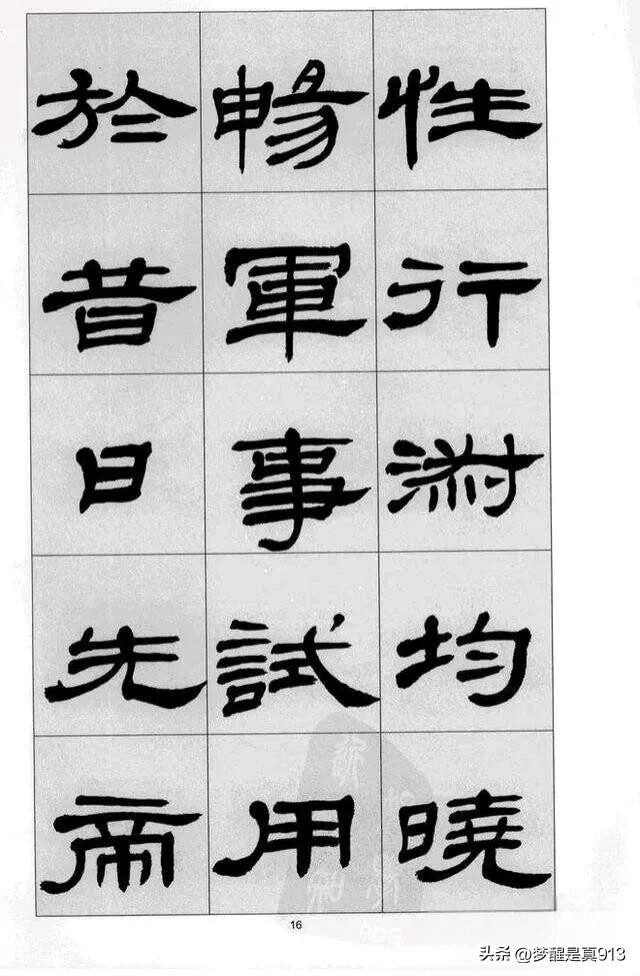 性行淑均曉
暢軍事試用
於昔日先帝
16
头条 @梦醒是真913